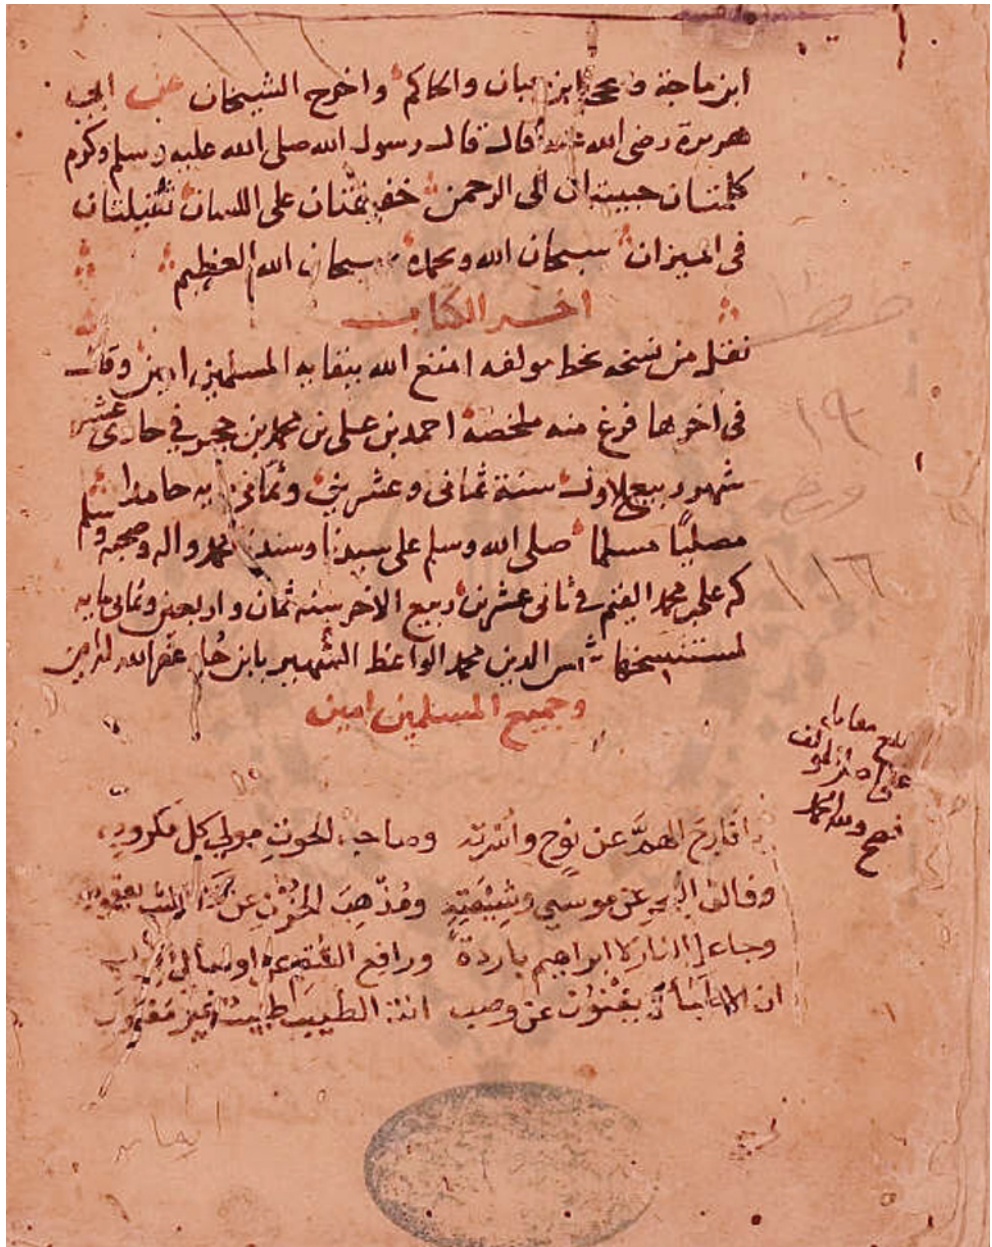 ابن ماجة وصححه ابن حبان والحاكم واخرج الشيخان عن ابي
هريرة رضى الله عنه قال قال رسول الله صلى الله عليه وسلم وكرم
كلمتان حبيبتان الى الرحمن خفيفتان على اللسان ثقيلتان
فى الميزان سبحان الله وبحمده سبحان الله العظيم
اخر الكتاب
نقل من نسخه بخط مولفه امتع الله ببقايه المسلمين امين وقال
فى اخرها فرغ منه ملخصه احمد بن على بن محمد بن حجر فى حادى عشر
شهر ربيع الاول سنة ثمانى وعشرين وثمانى ماية حامدا
مصليا مسلما صلى الله وسلم على سيدنا وسندنا محمد واله وصحبه وسلم
على بن محمد فى ثانى عشرين ربيع الاخر سنه ثمان واربعين وثمانى مايه
لمستنسخها شمس الدين محمد الواعظ الشهير بابن غفر الله
وجميع المسلمين امين
بلغ مقابلة
على اصل المولف
فصح ولله الحمد
يا فارج الهم عن نوح وأسرته وصاحب الحوت مولى كل مكروب
وفالق البحر عن موسى وشيعته ومذهب الحزن عن يعقوب
وجاعل النار لابراهيم باردة ورافع السقم عن اوصال ايوب
ان الاطباء لا يغنون عن وصب انت الطبيب طبيب غير مغلوب
١٩
١١٦